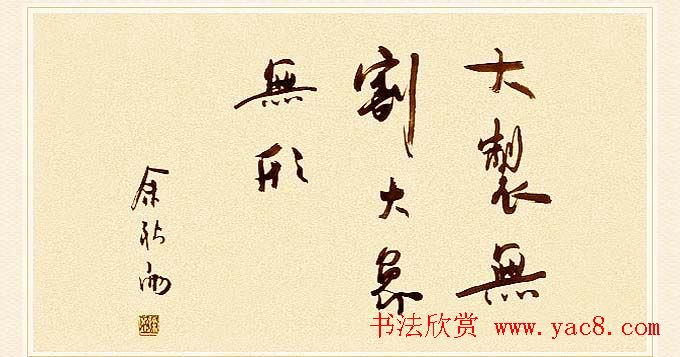 大製無
割大象
無形
余秋雨
书法欣赏 www.yac8.com